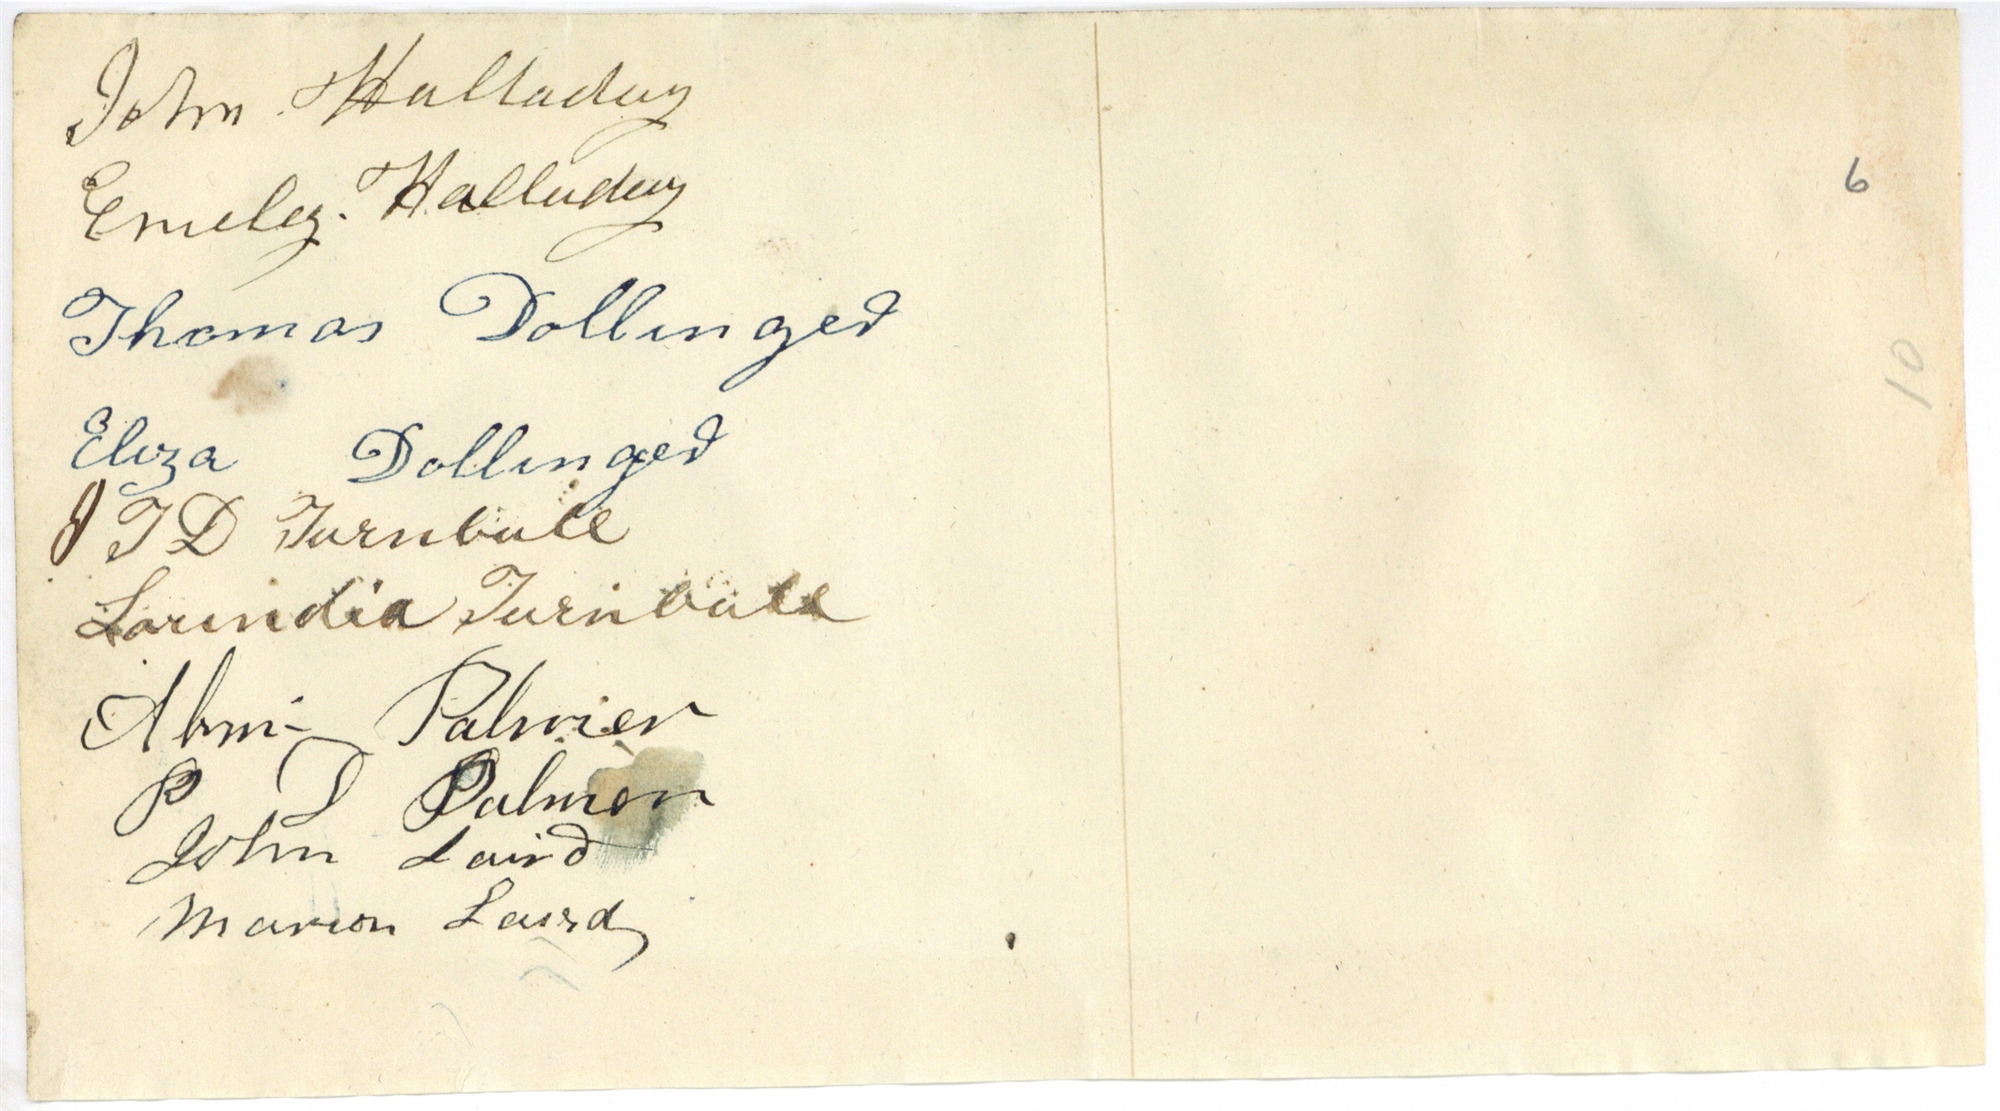 John Halladay
Emeley. Halladay
Thomas Dollinged
Eliza Dollinged
J T D Turnbull
Lorindia Turnbull
Palmer
P D Palmer
John Laird
Marion Laird
6
10